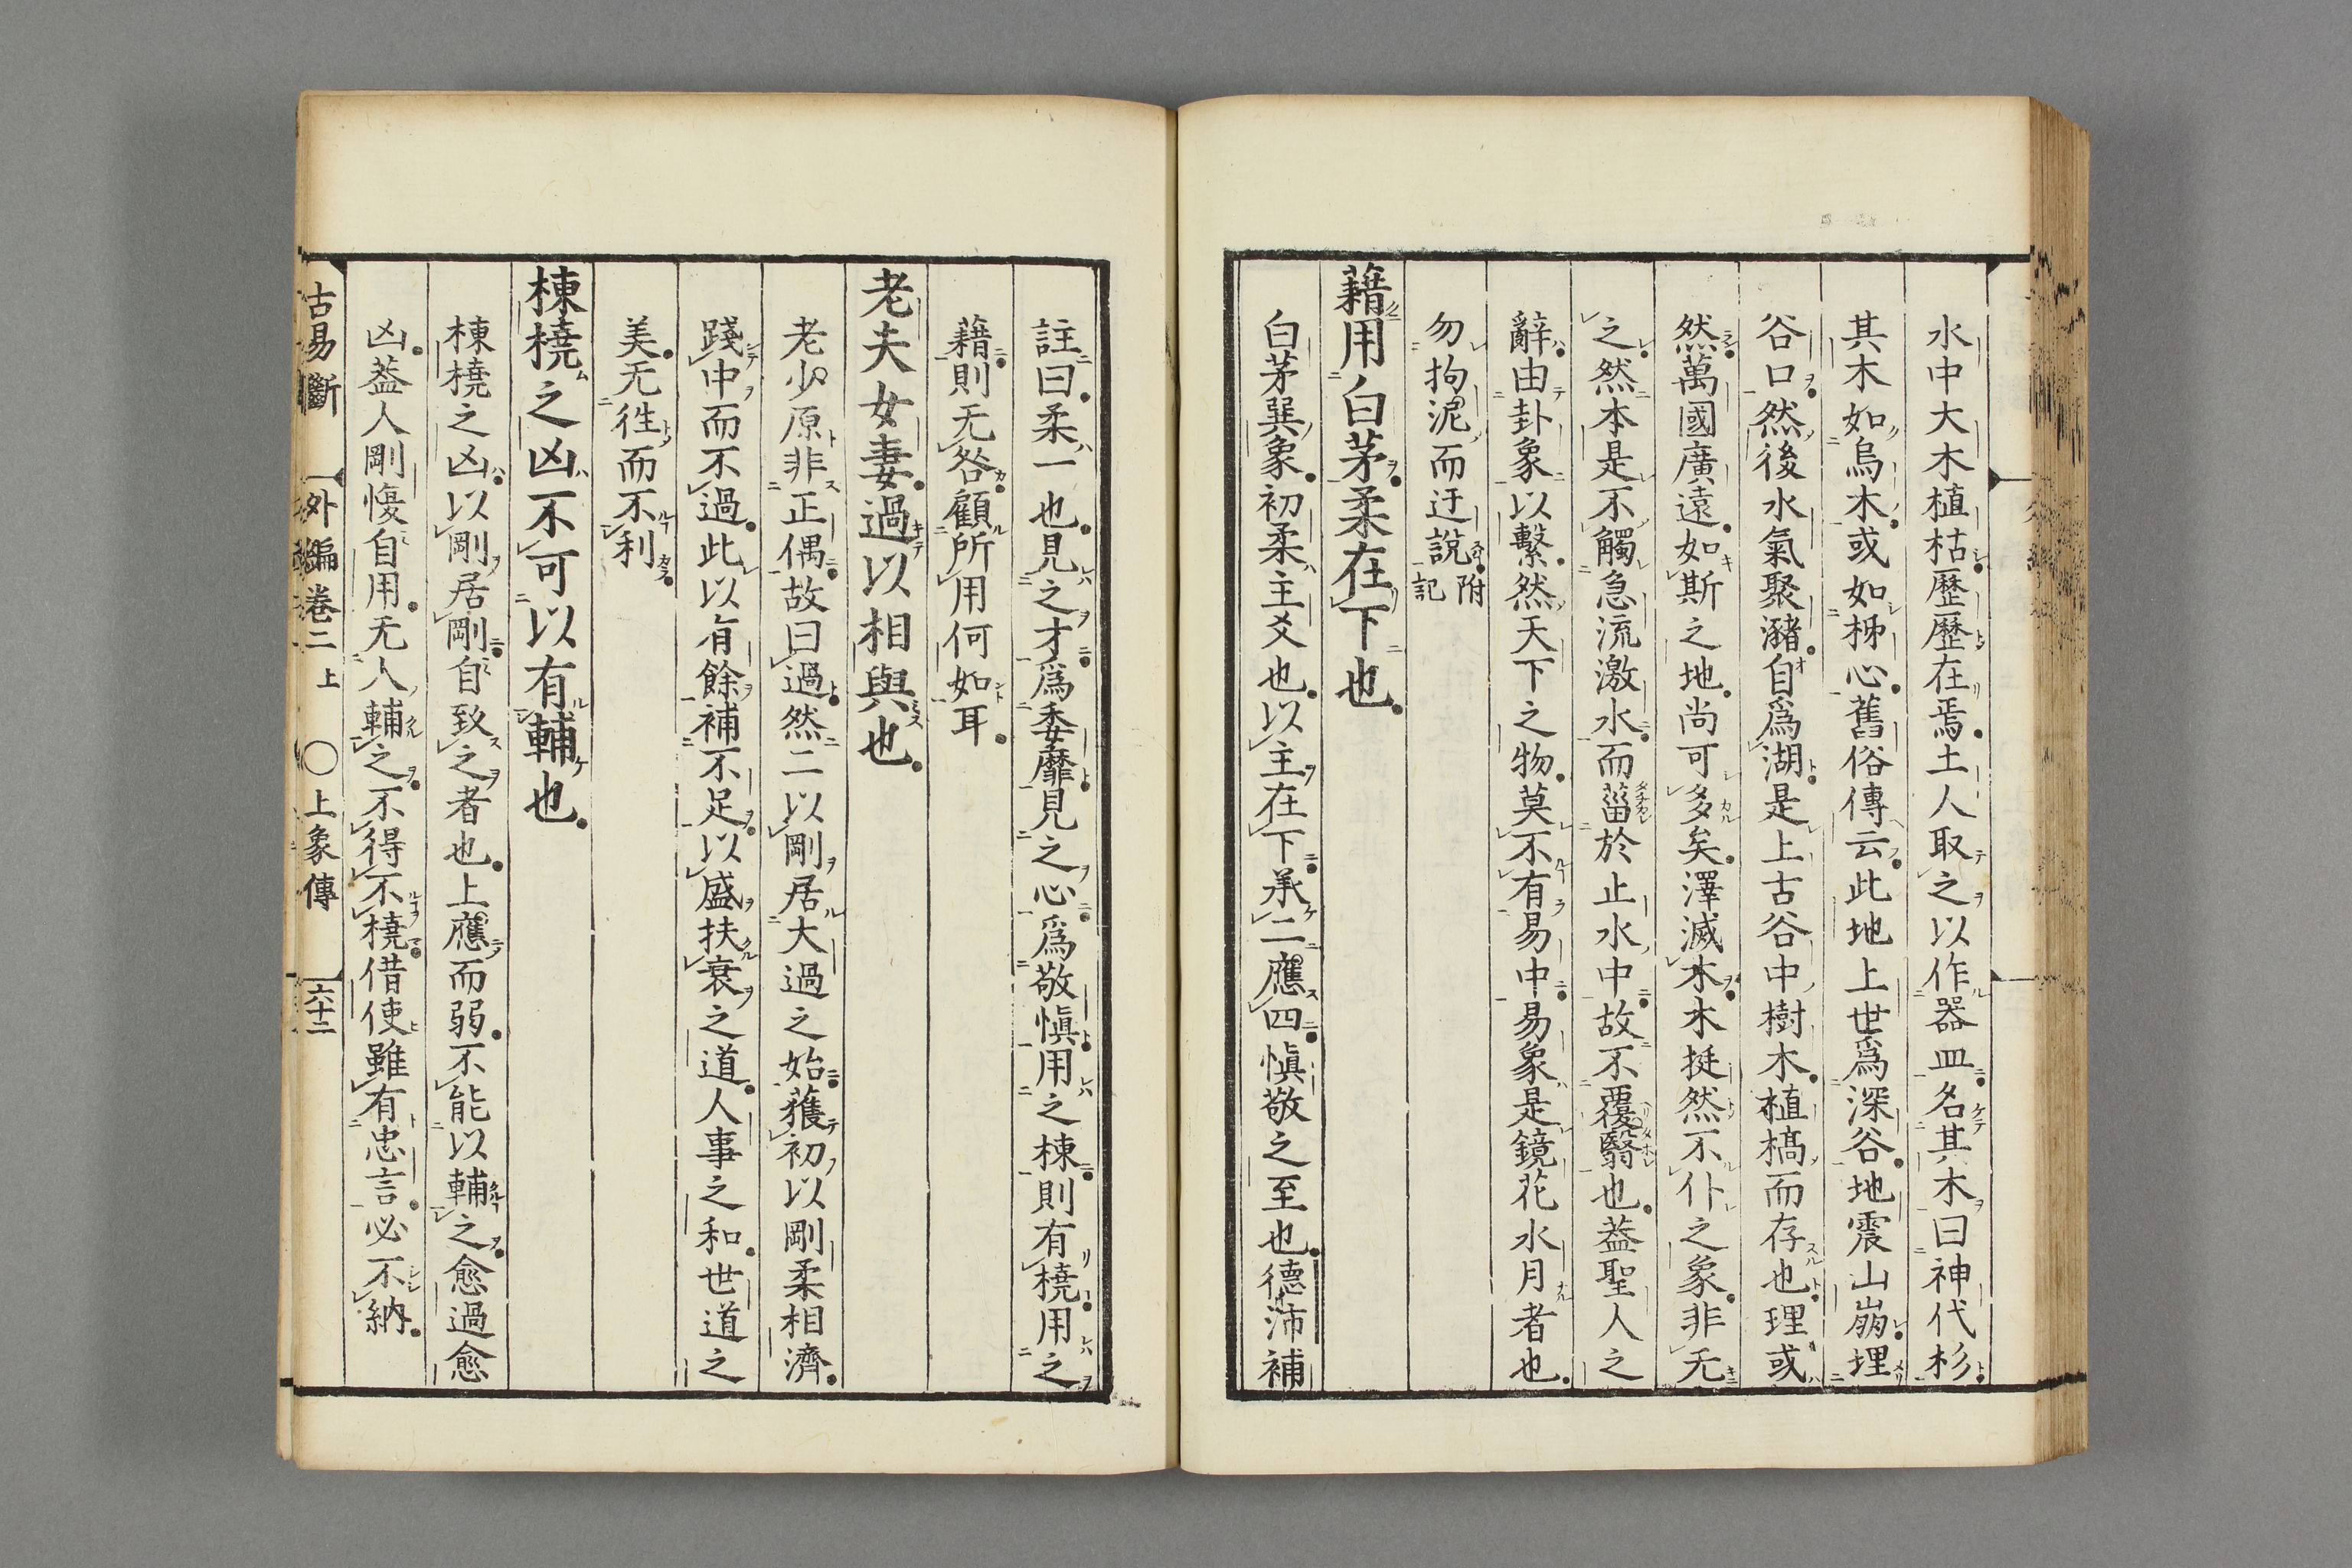 水中大木植枯歷歷在焉土人取之以作器皿名其木曰神代杉
其木如烏木或如柹心舊俗傳云此地上世爲深谷地震山崩埋
谷口然後水氣聚瀦自爲湖是上古谷中樹木植槁而存也理或
然萬國廣遠如斯之地尚可多矣澤滅木木挺然不仆之象非无
之然本是不觸急流激水而菑於止水中故不覆翳也葢聖人之
辭由卦象以繫然天下之物莫不有易中易象是鏡花水月者也
勿拘泥而迂說附記
藉用白茅柔在下也
白茅巽象初柔主爻也以主在下承二應四愼敬之至也德沛補
註曰柔一也見之才爲委靡見之心爲敬愼用之棟則有橈用之
藉則无咎顧所用何如耳
老夫女妻過以相與也
老少原非正偶故曰過然二以剛居大過之始獲初以剛柔相濟
踐中而不過此以有餘補不足以盛扶衰之道人事之和世道之
美无徃而不利
棟橈之凶不可以有輔也
棟橈之凶以剛居剛自致之者也上應而弱不能以輔之愈過愈
凶葢人剛愎自用无人輔之不得不橈借使雖有忠言必不納
古易斷 外編卷二上 ○上象傳 六十二